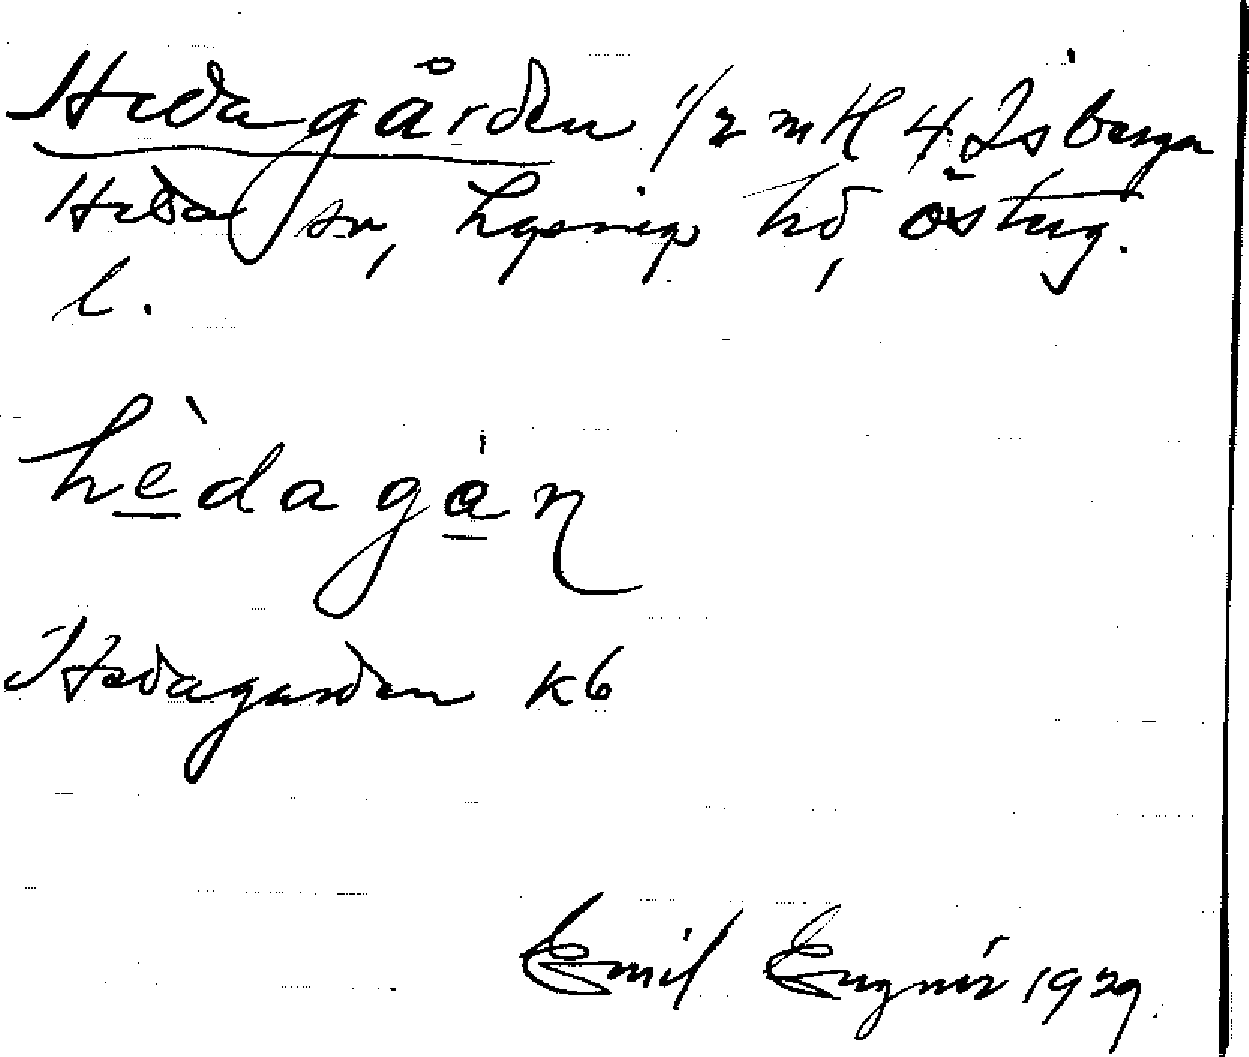 Hedagården 1/2 m H 4 Isberga
Heda sn, Lysings hd, Österg.
l.
hèdagán
Hedagården K6
Emil Eugnér 1929